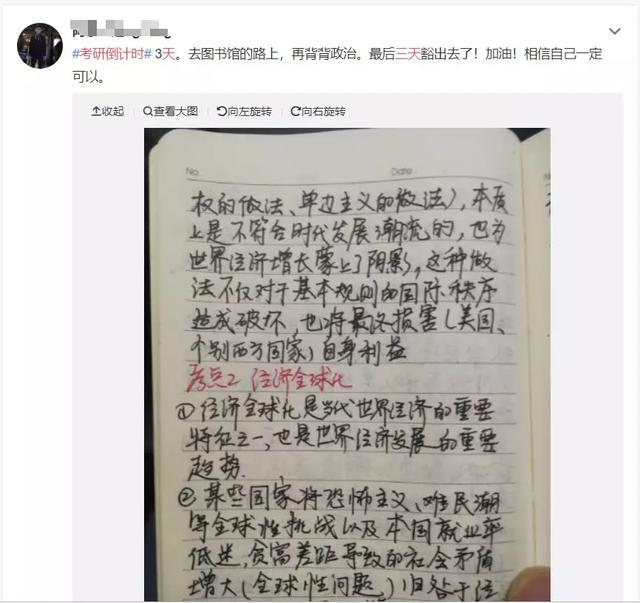 #考研倒计时 3天。去图书馆的路上，再背背政治。最后三天豁出去了！加油！相信自己一定
可以。
收起 查看大图 向左旋转 向右旋转
No. Date
权的做法、单边主义的做法），本质
上是不符合时代发展潮流的，也为
世界经济增长蒙上了阴影，这种做
法不仅对于基本规则的国际秩序
造成破坏，也将最终损害（美国、
个别西方国家）自身利益
考点2 经济全球化
①经济全球化是当代世界经济的重要
特征之一，也是世界经济发展的重要
趋势.
②某些国家将恐怖主义、难民潮
等全球性挑战以及本国就业率
低迷，贫富差距导致的社会矛盾
增大（全球性问题，）归咎于经